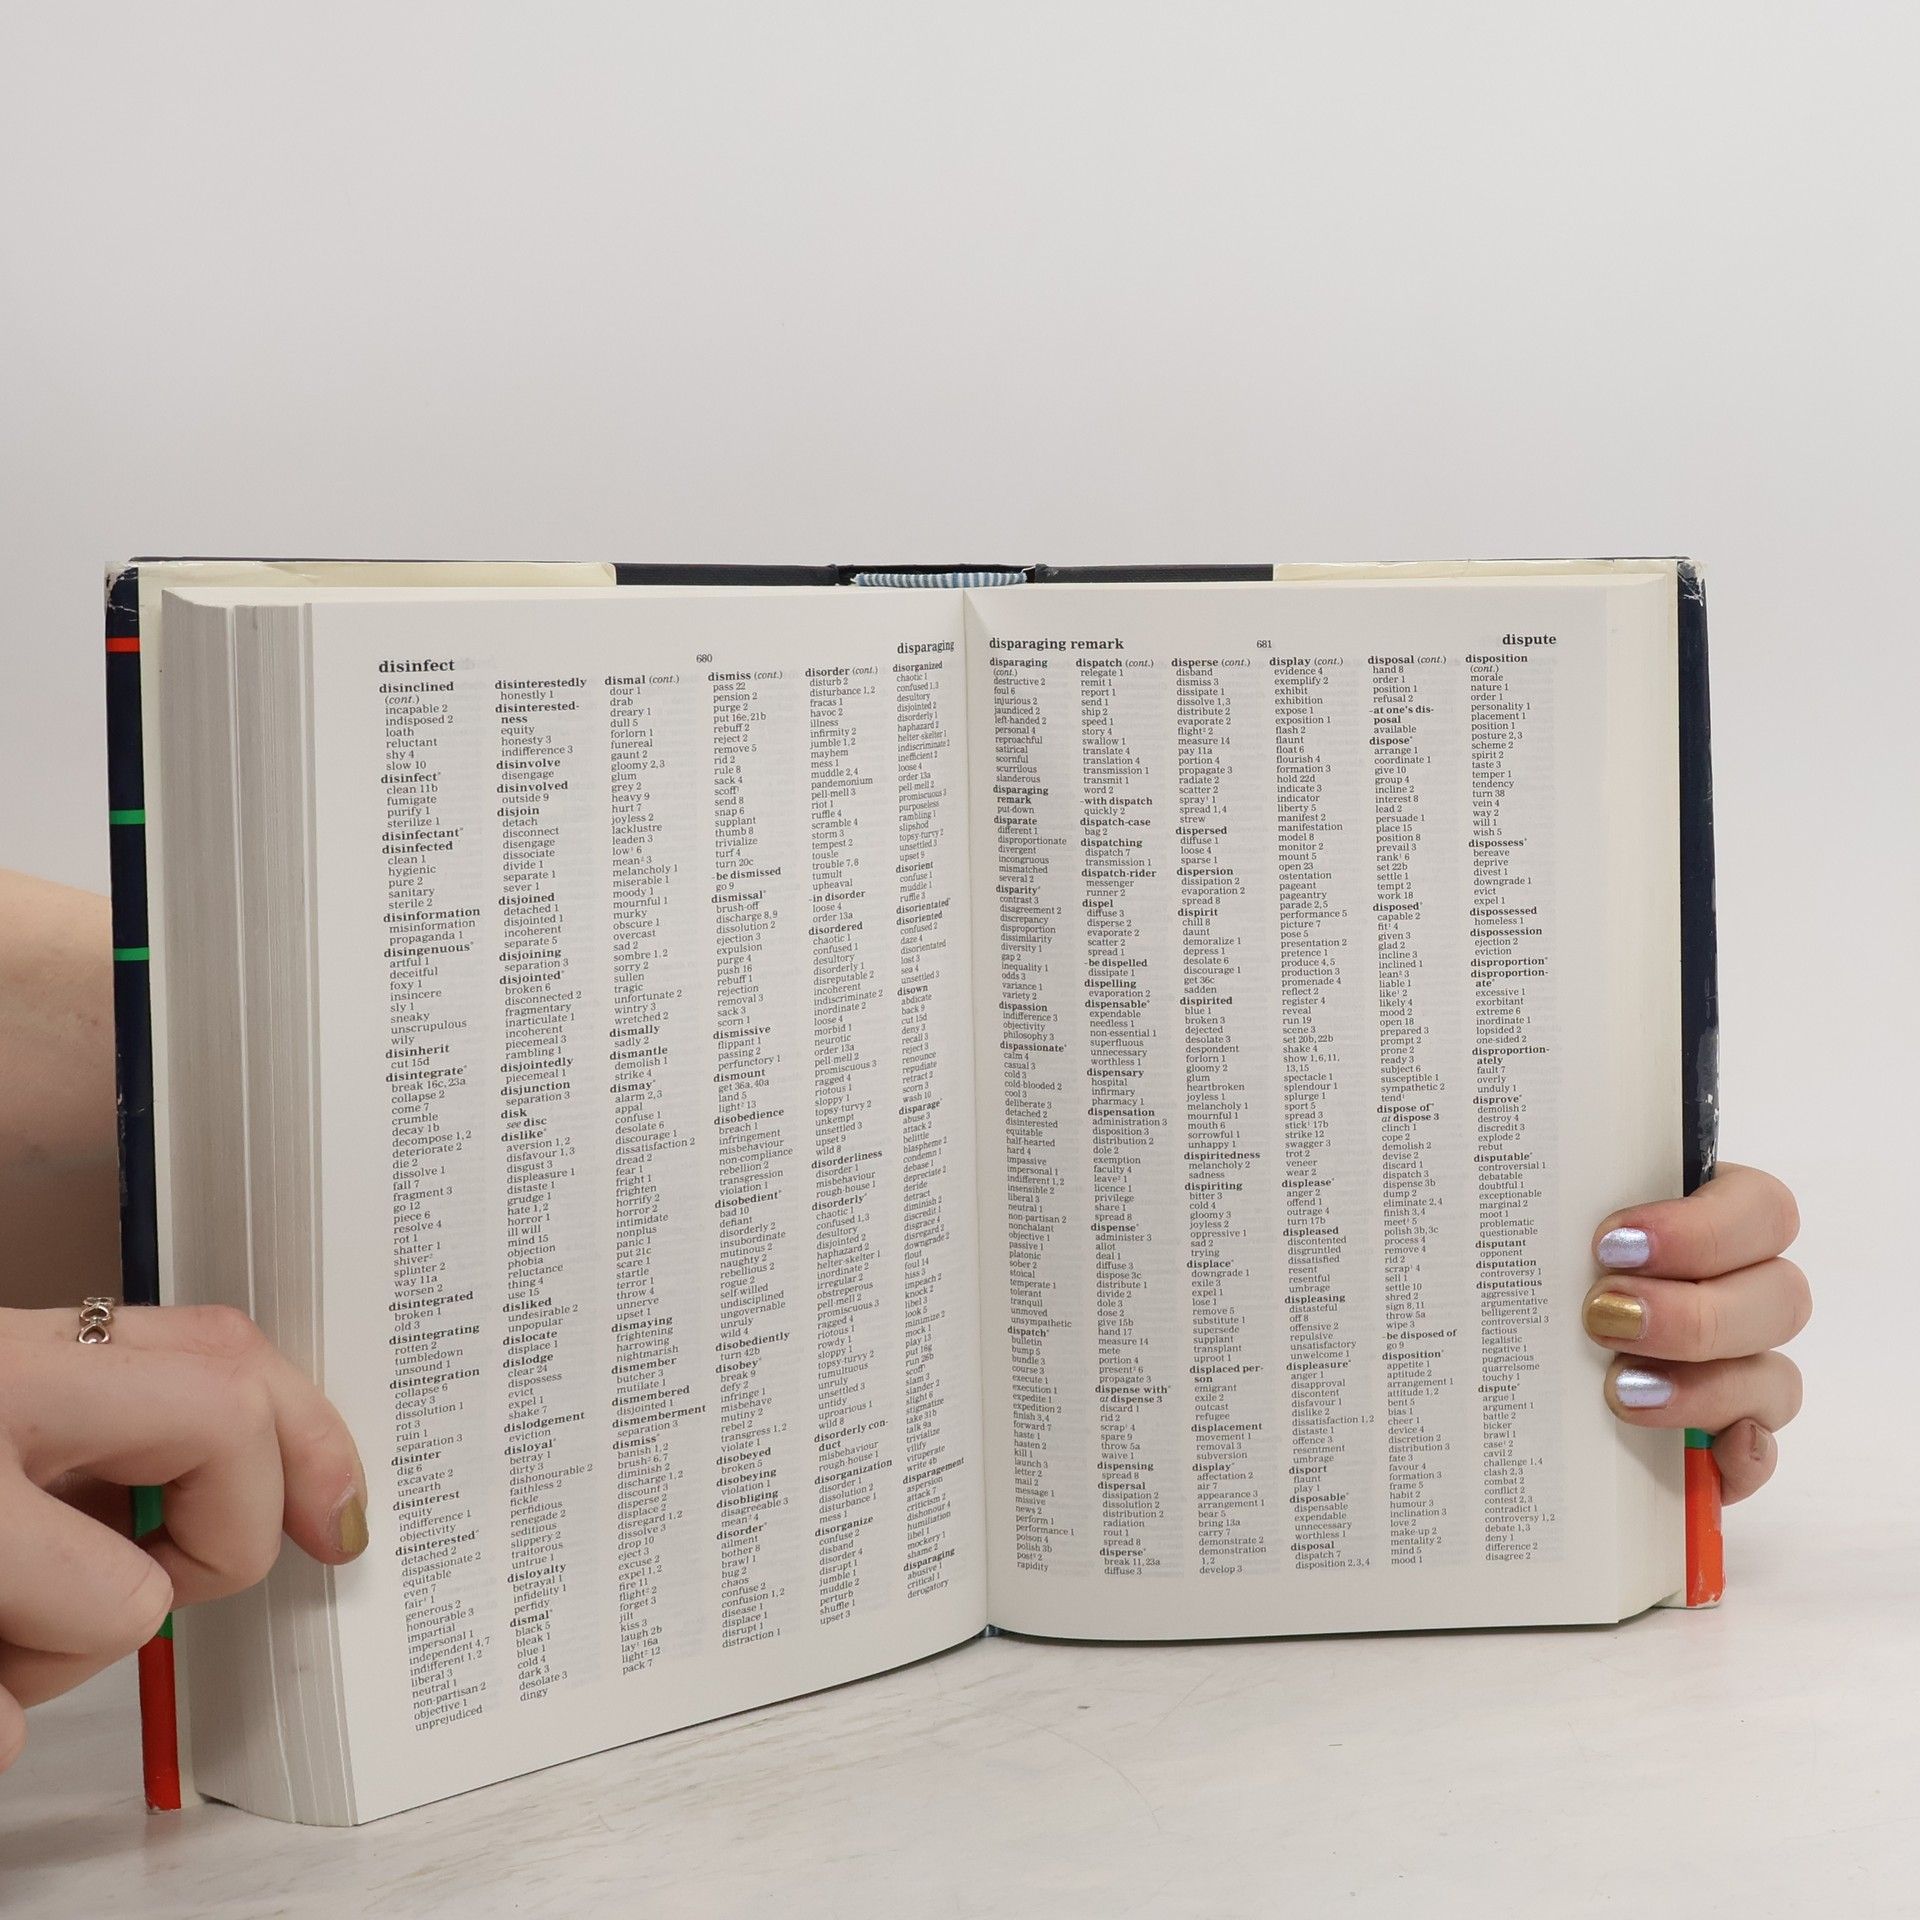 disinfect
680
disparaging
disinclined
(cont.)
incapable 2
indisposed 2
loath
reluctant
shy 4
slow 10
disinfect*
clean 11b
fumigate
purify 1
sterilize 1
disinfectant*
disinfected
clean 1
hygienic
pure 2
sanitary
sterile 2
disinformation
misinformation
propaganda 1
disingenuous*
artful 1
deceitful
foxy 1
insincere
sly 1
sneaky
unscrupulous
wily
disinherit
cut 15d
disintegrate*
break 16c, 23a
collapse 2
come 7
crumble
decay 1b
decompose 1, 2
deteriorate 2
die 2
dissolve 1
fall 7
fragment 3
go 12
piece 6
resolve 4
rot 1
shatter 1
shiver²
splinter 2
way 11a
worsen 2
disintegrated
broken 1
old 3
disintegrating
rotten 2
tumbledown
unsound 1
disintegration
collapse 6
decay 3
dissolution 1
rot 3
ruin 1
separation 3
disinter
dig 6
excavate 2
unearth
disinterest
equity
indifference 1
objectivity
disinterested*
detached 2
dispassionate 2
equitable
even 7
fair¹ 1
generous 2
honourable 3
impartial
impersonal 1
independent 4, 7
indifferent 1, 2
liberal 3
neutral 1
non-partisan 2
objective 1
unprejudiced
disinterestedly
honestly 1
disinterested-
ness
equity
honesty 3
indifference 3
disinvolve
disengage
disinvolved
outside 9
disjoin
detach
disconnect
disengage
dissociate
divide 1
separate 1
sever 1
disjoined
detached 1
disjointed 1
incoherent
separate 5
disjoining
separation 3
disjointed*
broken 6
disconnected 2
fragmentary
inarticulate 1
incoherent
piecemeal 3
rambling 1
disjointedly
piecemeal 1
disjunction
separation 3
disk
see disc
dislike*
aversion 1, 2
disfavour 1, 3
disgust 3
displeasure 1
distaste 1
grudge 1
hate 1, 2
horror 1
ill will
mind 15
objection
phobia
reluctance
thing 4
use 15
disliked
undesirable 2
unpopular
dislocate
displace 1
dislodge
clear 24
dispossess
evict
expel 1
shake 7
dislodgement
eviction
disloyal*
betray 1
dirty 3
dishonourable 2
faithless 2
fickle
perfidious
renegade 2
seditious
slippery 2
traitorous
untrue 1
disloyalty
betrayal 1
infidelity 1
perfidy
dismal*
black 5
bleak 1
blue 1
cold 4
dark 3
desolate 3
dingy
dismal (cont.)
dour 1
drab
dreary 1
dull 5
forlorn 1
funereal
gaunt 2
gloomy 2, 3
glum
grey 2
heavy 9
hurt 7
joyless 2
lacklustre
leaden 3
low¹ 6
mean² 3
melancholy 1
miserable 1
moody 1
mournful 1
murky
obscure 1
overcast
sad 2
sombre 1, 2
sorry 2
sullen
tragic
unfortunate 2
wintry 3
wretched 2
dismally
sadly 2
dismantle
demolish 1
strike 4
dismay*
alarm 2, 3
appal
confuse 1
desolate 6
discourage 1
dissatisfaction 2
dread 2
fear 1
fright 1
frighten
horrify 2
horror 2
intimidate
nonplus
panic 1
put 21c
scare 1
startle
terror 1
throw 4
unnerve
upset 1
dismaying
frightening
harrowing
nightmarish
dismember
butcher 3
mutilate 1
dismembered
disjointed 1
dismemberment
separation 3
dismiss*
banish 1, 2
brush² 6, 7
diminish 2
discharge 1, 2
discount 3
disperse 2
displace 2
disregard 1, 2
dissolve 3
drop 10
eject 3
excuse 2
expel 1, 2
fire 11
flight² 2
forget 3
jilt
kiss 3
laugh 2b
lay¹ 16a
light² 12
pack 7
dismiss (cont.)
pass 22
pension 2
purge 2
put 16e, 21b
rebuff 2
reject 2
remove 5
rid 2
rule 8
sack 4
scoff¹
send 8
snap 6
supplant
thumb 8
trivialize
turf 4
turn 20c
-be dismissed
go 9
dismissal*
brush-off
discharge 8, 9
dissolution 2
ejection 3
expulsion
purge 4
push 16
rebuff 1
rejection
removal 3
sack 3
scorn 1
dismissive
flippant 1
passing 2
perfunctory 1
dismount
get 36a, 40a
land 5
light² 13
disobedience
breach 1
infringement
misbehaviour
non-compliance
rebellion 2
transgression
violation 1
disobedient*
bad 10
defiant
disorderly 2
insubordinate
mutinous 2
naughty 2
rebellious 2
rogue 2
self-willed
undisciplined
ungovernable
unruly
wild 4
disobediently
turn 42b
disobey*
break 9
defy 2
infringe 1
misbehave
mutiny 2
rebel 2
transgress 1, 2
violate 1
disobeyed
broken 5
disobeying
violation 1
disobliging
disagreeable 3
mean² 4
disorder*
ailment
bother 8
brawl 1
bug 2
chaos
confuse 2
confusion 1, 2
disease 1
displace 1
disrupt 1
distraction 1
disorder (cont.)
disturb 2
disturbance 1, 2
fracas 1
havoc 2
illness
infirmity 2
jumble 1, 2
mayhem
mess 1
muddle 2, 4
pandemonium
pell-mell 3
riot 1
ruffle 4
scramble 4
storm 3
tempest 2
tousle
trouble 7, 8
tumult
upheaval
-in disorder
loose 4
order 13a
disordered
chaotic 1
confused 1
desultory
disorderly 1
disreputable 2
incoherent
indiscriminate 2
inordinate 2
loose 4
morbid 1
neurotic
order 13a
pell-mell 2
promiscuous 3
ragged 4
riotous 1
sloppy 1
topsy-turvy 2
unkempt
unsettled 3
upset 9
wild 8
disorderliness
disorder 1
misbehaviour
rough-house 1
disorderly*
chaotic 1
confused 1, 3
desultory
disjointed 2
haphazard 2
helter-skelter 1
inordinate 2
irregular 2
obstreperous
pell-mell 2
promiscuous 3
ragged 4
riotous 1
rowdy 1
sloppy 1
topsy-turvy 2
tumultuous
unruly
unsettled 3
untidy
uproarious 1
wild 8
disorderly con-
duct
misbehaviour
rough-house 1
disorganization
disorder 1
dissolution 2
disturbance 1
mess 1
disorganize
confuse 2
disband
disorder 4
disrupt 1
jumble 1
muddle 2
perturb
shuffle 1
upset 3
disorganized
chaotic 1
confused 1, 3
desultory
disjointed 2
disorderly 1
haphazard 2
helter-skelter 1
indiscriminate 2
inefficient 2
loose 4
order 13a
pell-mell 2
promiscuous 3
purposeless
rambling 1
slipshod
topsy-turvy 2
unsettled 3
upset 9
disorient
confuse 1
muddle 1
ruffle 3
disorientated*
disoriented
confused 2
daze 4
disorientated
lost 3
sea 4
unsettled 3
disown
abdicate
back 9
cut 15d
deny 3
recall 3
reject 3
renounce
repudiate
retract 2
scorn 3
wash 10
disparage*
abuse 3
attack 2
belittle
blaspheme 2
condemn 1
debase 1
depreciate 2
deride
detract
diminish 2
discredit 1
disgrace 4
disregard 2
downgrade 2
flout
foul 14
hiss 3
impeach 2
knock 2
libel 3
look 5
minimize 2
mock 1
play 13
put 16g
run 26b
scoff¹
slam 3
slander 2
slight 6
stigmatize
take 31b
talk 9a
trivialize
vilify
vituperate
write 4b
disparagement
aspersion
attack 7
criticism 2
dishonour 4
humiliation
libel 1
mockery 1
shame 2
disparaging
abusive 1
critical 1
derogatory
disparaging remark
681
dispute
disparaging
(cont.)
destructive 2
foul 6
injurious 2
jaundiced 2
left-handed 2
personal 4
reproachful
satirical
scornful
scurrilous
slanderous
disparaging
remark
put-down
disparate
different 1
disproportionate
divergent
incongruous
mismatched
several 2
disparity*
contrast 3
disagreement 2
discrepancy
disproportion
dissimilarity
diversity 1
gap 2
inequality 1
odds 3
variance 1
variety 2
dispassion
indifference 3
objectivity
philosophy 3
dispassionate*
calm 4
casual 3
cold 3
cold-blooded 2
cool 3
deliberate 3
detached 2
disinterested
equitable
half-hearted
hard 4
impassive
impersonal 1
indifferent 1, 2
insensible 2
liberal 3
neutral 1
non-partisan 2
nonchalant
objective 1
passive 1
platonic
sober 2
stoical
temperate 1
tolerant
tranquil
unmoved
unsympathetic
dispatch*
bulletin
bump 5
bundle 3
course 3
execute 1
execution 1
expedite 1
expedition 2
finish 3, 4
forward 7
haste 1
hasten 2
kill 1
launch 3
letter 2
mail 2
message 1
missive
news 2
perform 1
performance 1
poison 4
polish 3b
post² 2
rapidity
dispatch (cont.)
relegate 1
remit 1
report 1
send 1
ship 2
speed 1
story 4
swallow 1
translate 4
translation 4
transmission 1
transmit 1
word 2
-with dispatch
quickly 2
dispatch-case
bag 2
dispatching
dispatch 7
transmission 1
dispatch-rider
messenger
runner 2
dispel
diffuse 3
disperse 2
evaporate 2
scatter 2
spread 1
-be dispelled
dissipate 1
dispelling
evaporation 2
dispensable*
expendable
needless 1
non-essential 1
superfluous
unnecessary
worthless 1
dispensary
hospital
infirmary
pharmacy 1
dispensation
administration 3
disposition 3
distribution 2
dole 2
exemption
faculty 4
leave² 1
licence 1
privilege
share 1
spread 8
dispense*
administer 3
allot
deal 1
diffuse 3
dispose 3c
distribute 1
divide 2
dole 3
dose 2
give 15b
hand 17
measure 14
mete
portion 4
present³ 6
propagate 3
dispense with*
at dispense 3
discard 1
rid 2
scrap¹ 4
spare 9
throw 5a
waive 1
dispensing
spread 8
dispersal
dissipation 2
dissolution 2
distribution 2
radiation
rout 1
spread 8
disperse*
break 11, 23a
diffuse 3
disperse (cont.)
disband
dismiss 3
dissipate 1
dissolve 1, 3
distribute 2
evaporate 2
flight² 2
measure 14
pay 11a
portion 4
propagate 3
radiate 2
scatter 2
spray¹ 1
spread 1, 4
strew
dispersed
diffuse 1
loose 4
sparse 1
dispersion
dissipation 2
evaporation 2
spread 8
dispirit
chill 8
daunt
demoralize 1
depress 1
desolate 6
discourage 1
get 36c
sadden
dispirited
blue 1
broken 3
dejected
desolate 3
despondent
forlorn 1
gloomy 2
glum
heartbroken
joyless 1
melancholy 1
mournful 1
mouth 6
sorrowful 1
unhappy 1
dispiritedness
melancholy 2
sadness
dispiriting
bitter 3
cold 4
gloomy 3
joyless 2
oppressive 1
sad 2
trying
displace*
downgrade 1
exile 3
expel 1
lose 1
remove 5
substitute 1
supersede
supplant
transplant
uproot 1
displaced per-
son
emigrant
exile 2
outcast
refugee
displacement
movement 1
removal 3
subversion
display*
affectation 2
air 7
appearance 3
arrangement 1
bear 5
bring 13a
carry 7
demonstrate 2
demonstration
1, 2
develop 3
display (cont.)
evidence 4
exemplify 2
exhibit
exhibition
expose 1
exposition 1
flash 2
flaunt
float 6
flourish 4
formation 3
hold 22d
indicate 3
indicator
liberty 5
manifest 2
manifestation
model 8
monitor 2
mount 5
open 23
ostentation
pageant
pageantry
parade 2, 5
performance 5
picture 7
pose 5
presentation 2
pretence 1
produce 4, 5
production 3
promenade 4
reflect 2
register 4
reveal
run 19
scene 3
set 20b, 22b
shake 4
show 1, 6, 11,
13, 15
spectacle 1
splendour 1
splurge 1
sport 5
spread 3
stick¹ 17b
strike 12
swagger 3
trot 2
veneer
wear 2
displease*
anger 2
offend 1
outrage 4
turn 17b
displeased
discontented
disgruntled
dissatisfied
resent
resentful
umbrage
displeasing
distasteful
off 8
offensive 2
repulsive
unsatisfactory
unwelcome 1
displeasure*
anger 1
disapproval
discontent
disfavour 1
dislike 2
dissatisfaction 1, 2
distaste 1
offence 3
resentment
umbrage
disport
flaunt
play 1
disposable*
dispensable
expendable
unnecessary
worthless 1
disposal
dispatch 7
disposition 2, 3, 4
disposal (cont.)
hand 8
order 1
position 1
refusal 2
-at one's dis-
posal
available
dispose*
arrange 1
coordinate 1
give 10
group 4
incline 2
interest 8
lead 2
persuade 1
place 15
position 8
prevail 3
rank¹ 6
set 22b
settle 1
tempt 2
work 18
disposed*
capable 2
fit¹ 4
given 3
glad 2
incline 3
inclined 1
lean² 3
liable 1
like¹ 2
likely 4
mood 2
open 18
prepared 3
prompt 2
prone 2
ready 3
subject 6
susceptible 1
sympathetic 2
tend¹
dispose of*
at dispose 3
clinch 1
cope 2
demolish 2
devise 2
discard 1
dispatch 3
dispense 3b
dump 2
eliminate 2, 4
finish 3, 4
meet¹ 5
polish 3b, 3c
process 4
remove 4
rid 2
scrap¹ 4
sell 1
settle 10
shred 2
sign 8, 11
throw 5a
wipe 3
-be disposed of
go 9
disposition*
appetite 1
aptitude 2
arrangement 1
attitude 1, 2
bent 5
bias 1
cheer 1
device 4
discretion 2
distribution 3
fate 3
favour 4
formation 3
frame 5
habit 2
humour 3
inclination 3
love 2
make-up 2
mentality 2
mind 5
mood 1
disposition
(cont.)
morale
nature 1
order 1
personality 1
placement 1
position 1
posture 2, 3
scheme 2
spirit 2
taste 3
temper 1
tendency
turn 38
vein 4
way 2
will 1
wish 5
dispossess*
bereave
deprive
divest 1
downgrade 1
evict
expel 1
dispossessed
homeless 1
dispossession
ejection 2
eviction
disproportion*
disproportion-
ate*
excessive 1
exorbitant
extreme 6
inordinate 1
lopsided 2
one-sided 2
disproportion-
ately
fault 7
overly
unduly 1
disprove*
demolish 2
destroy 4
discredit 3
explode 2
rebut
disputable*
controversial 1
debatable
doubtful 1
exceptionable
marginal 2
moot 1
problematic
questionable
disputant
opponent
disputation
controversy 1
disputatious
aggressive 1
argumentative
belligerent 2
controversial 3
factious
legalistic
negative 1
pugnacious
quarrelsome
touchy 1
dispute*
argue 1
argument 1
battle 2
bicker
brawl 1
case¹ 2
cavil 2
challenge 1, 4
clash 2, 3
combat 2
conflict 2
contest 2, 3
contradict 1
controversy 1, 2
debate 1, 3
deny 1
difference 2
disagree 2